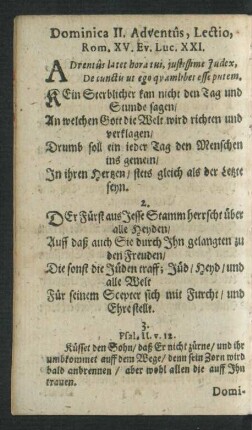 Dominica II. Adventûs, Lectio,
Rom. XV. Ev. Luc. XXI.
ADventûs latet hora tui, justissime Judex,
De cunctis ut ego quamlibet esse putem.
KEin Sterblicher kan nicht den Tag und
Stunde sagen/
An welchen Gott die Welt wird richten und
verklagen/
Drumb soll ein ieder Tag den Menschen
ins gemein/
In ihren Hertzen/ stets gleich als der Letzte
seyn.
2.
DEr Fürst aus Jesse Stamm herrscht über
alle Heyden/
Auff daß auch Sie durch Ihn gelangten zu
den Freuden/
Die sonst die Jüden traff; Jüd/ Heyd/ und
alle Welt
Für seinem Scepter sich mit Furcht/ und
Ehre stellt.
3.
Psal. II. v. 12.
Küsset den Sohn/ daß Er nicht zürne/ und ihr
umbkommet auff dem Wege/ denn sein Zorn wird
bald anbrennen/ aber wohl allen die auff Ihn
trauen.
Domi-